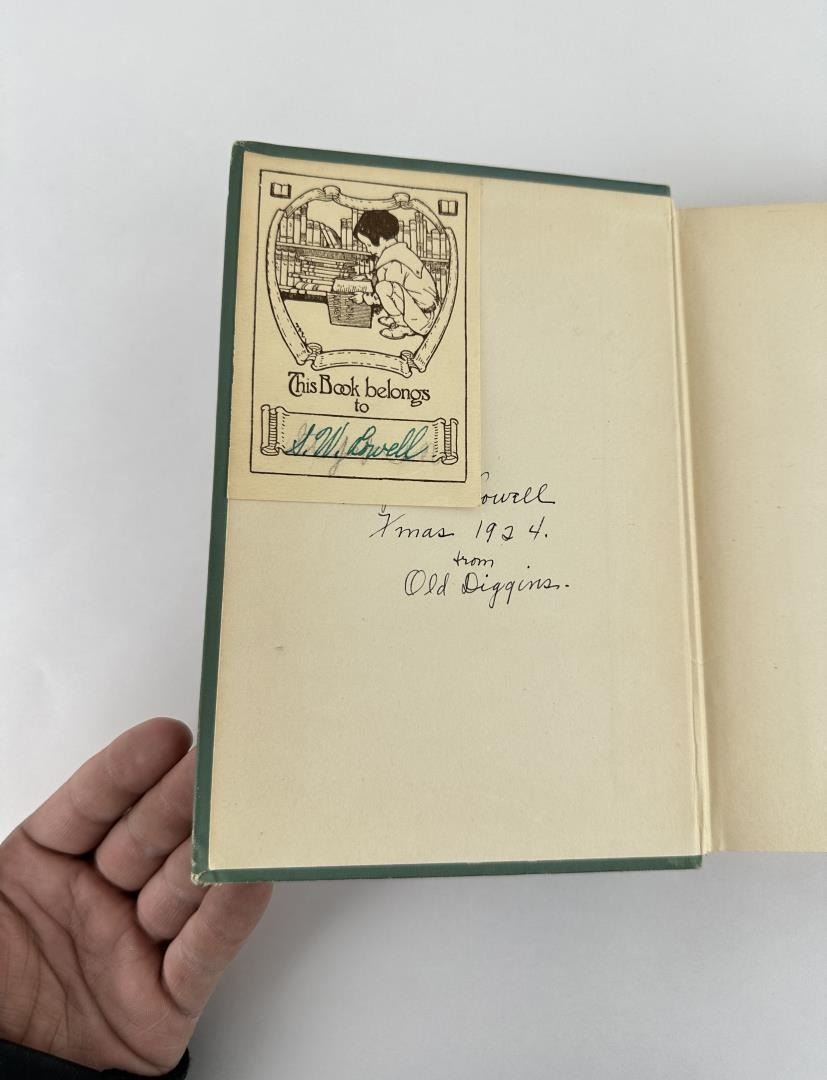 This Book belongs
to
S. W. Lowell
Lowell
Xmas 1924.
from
Old Diggins.